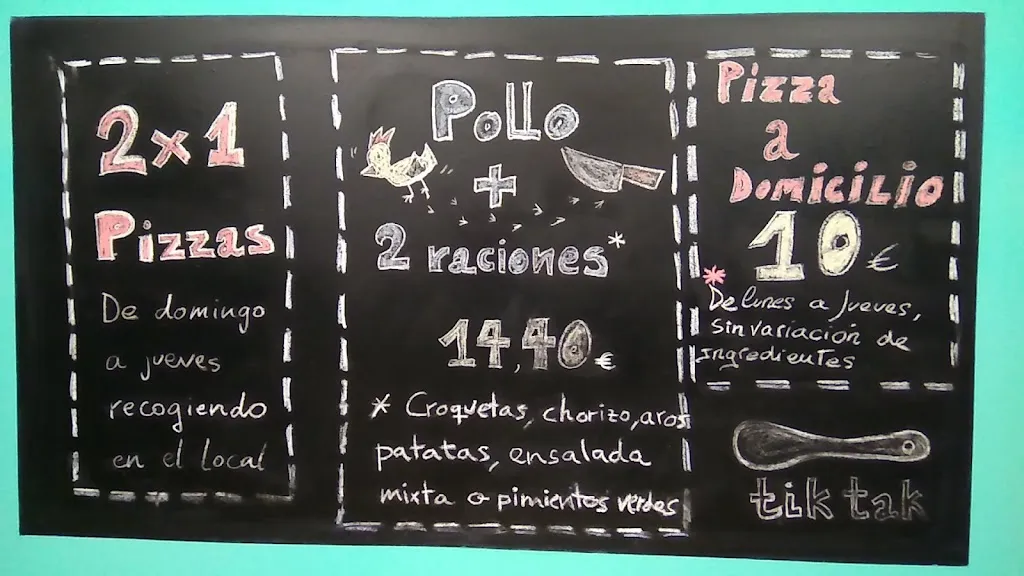 2x1
Pizzas
De domingo
a jueves
recogiendo
en el local
Pollo
+
2 raciones*
14,40€
* Croquetas, chorizo, aros
patatas, ensalada
mixta o pimientos verdes
Pizza
a
Domicilio
10€
*
De lunes a jueves,
sin variación de
ingredientes
tik tak